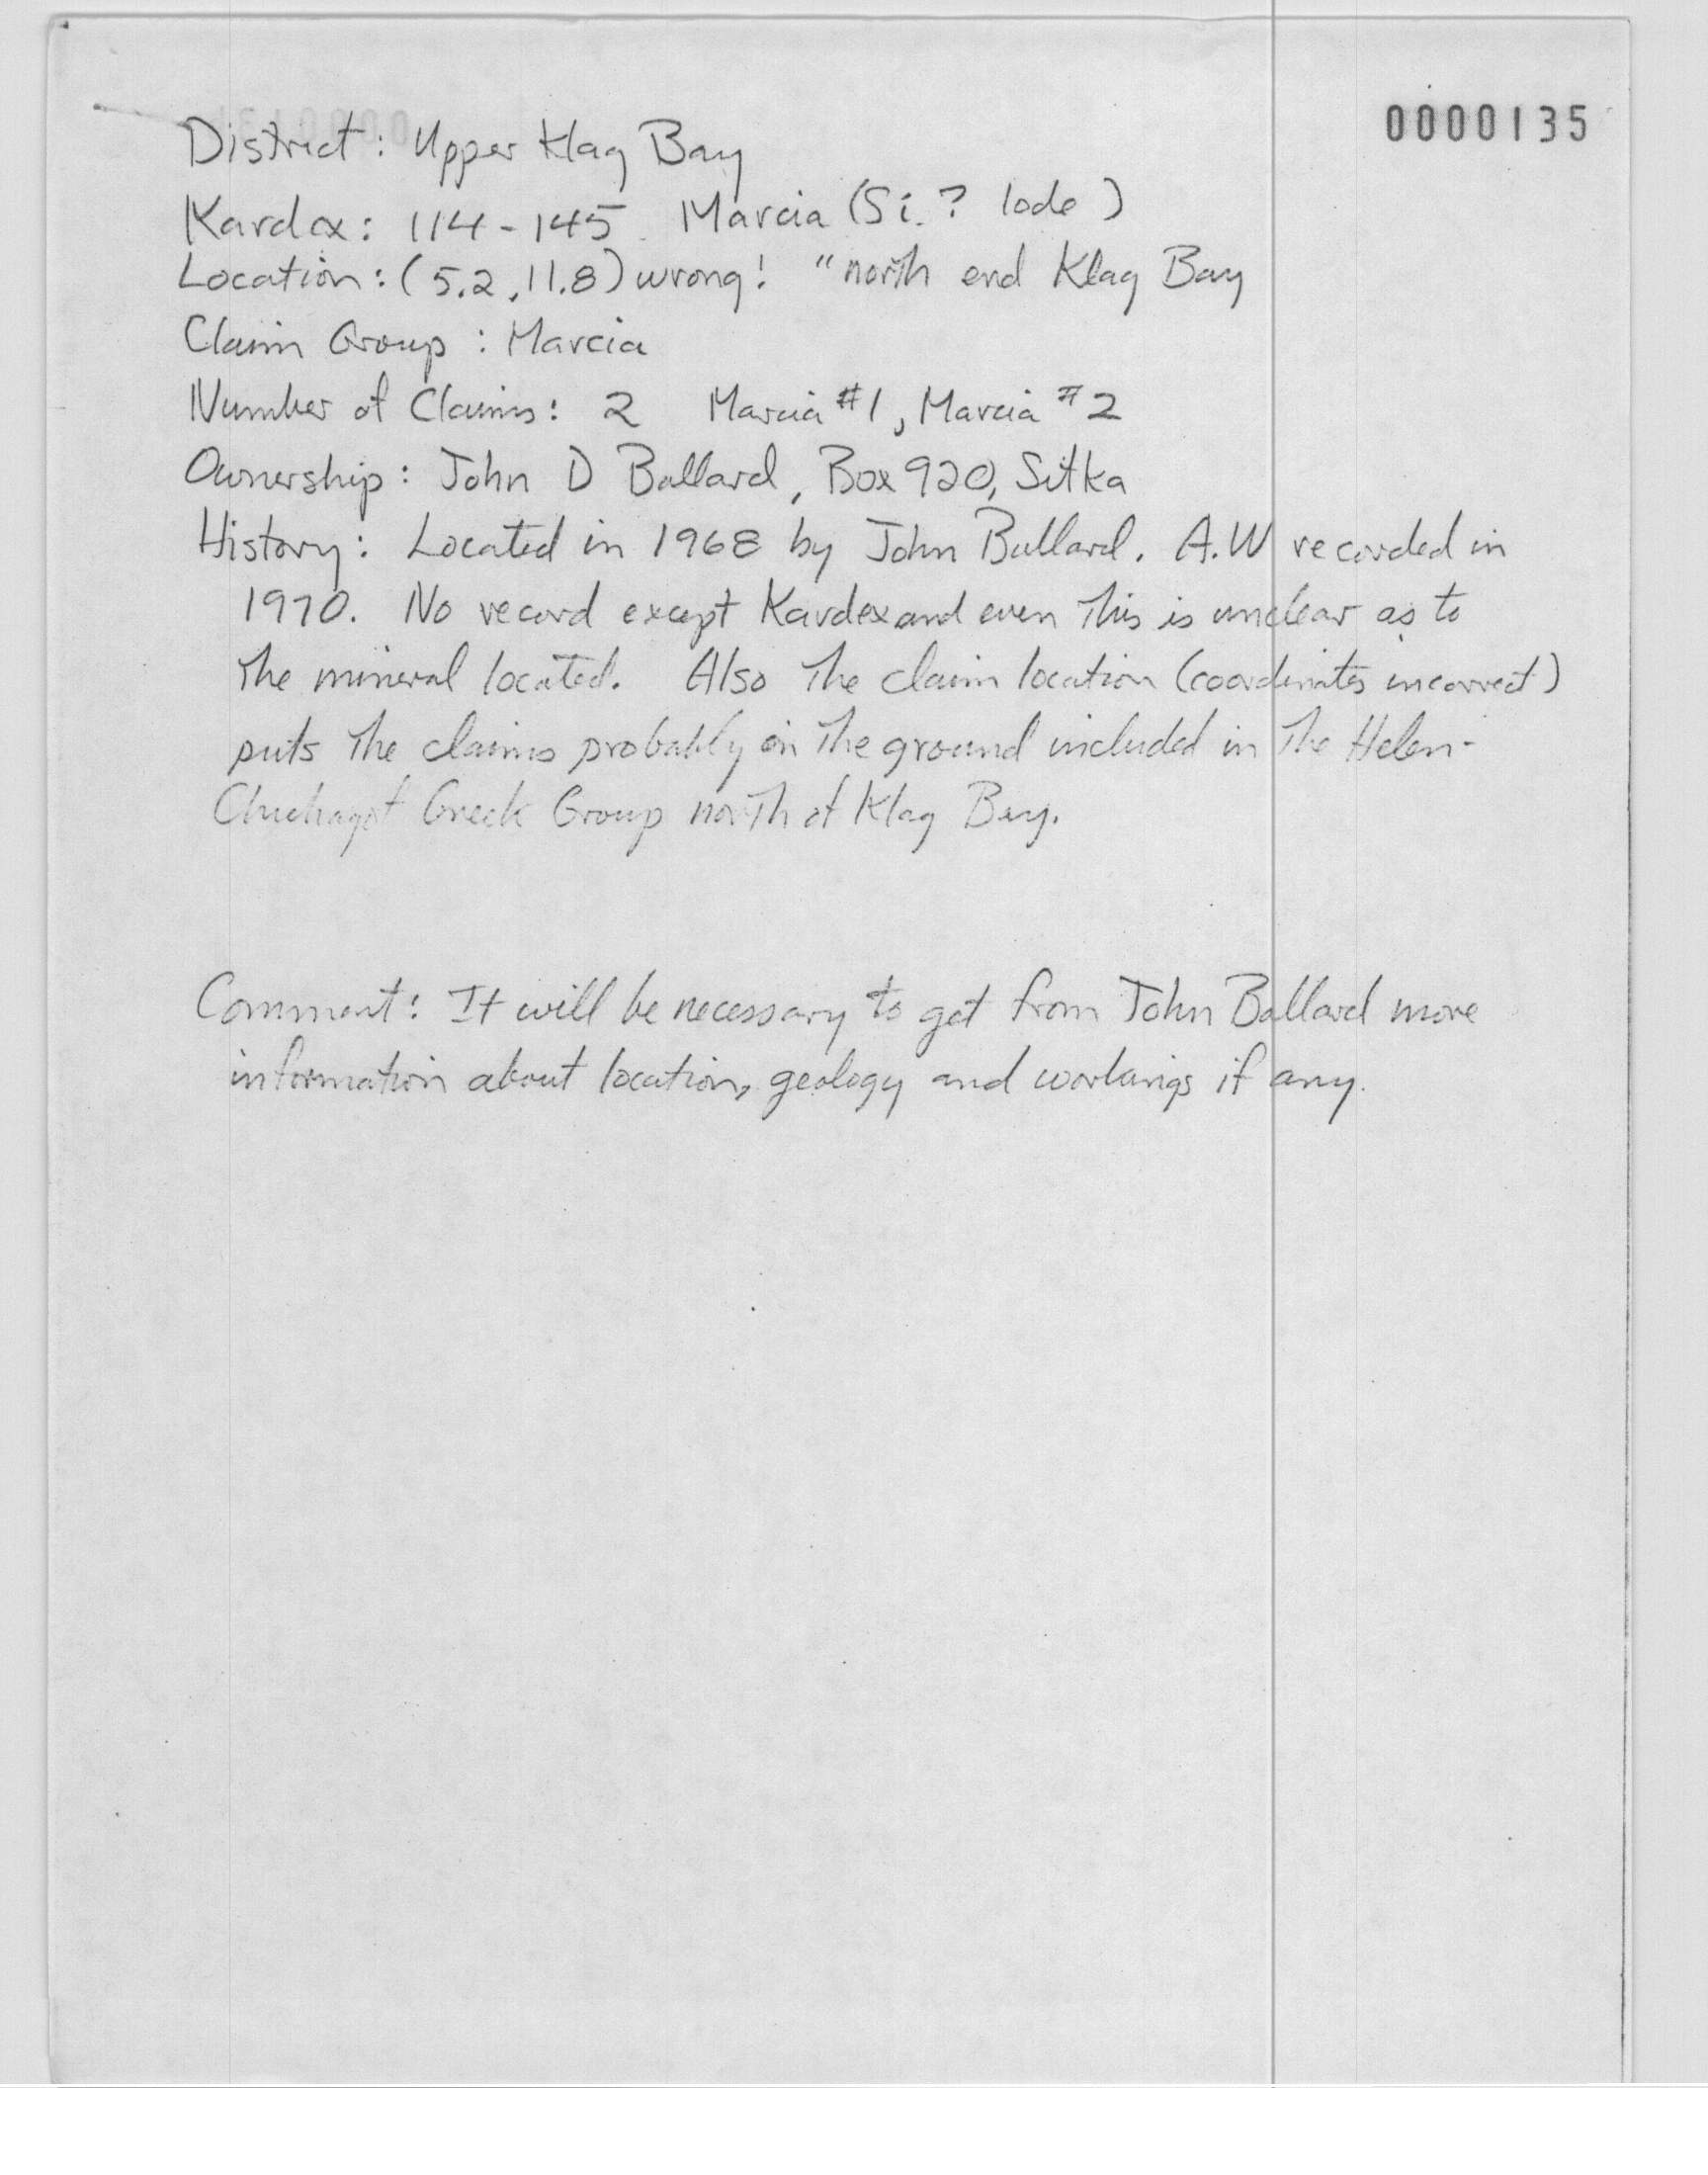 0000135
District: Upper Klag Bay
Kardex: 114-145 Marcia (Si.? lode)
Location: (5.2, 11.8) wrong! "north end Klag Bay
Claim Group: Marcia
Number of Claims: 2 Marcia #1, Marcia #2
Ownership: John D Ballard, Box 920, Sitka
History: Located in 1968 by John Ballard. A.W recorded in
1970. No record except Kardex and even this is unclear as to
the mineral located. Also the claim location (coordinates incorrect)
puts the claims probably on the ground included in the Helen-
Chichagof Creek Group north of Klag Bay.
Comment: It will be necessary to get from John Ballard more
information about location, geology and workings if any.